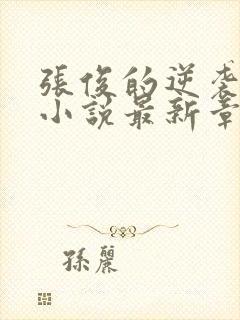 張俊的逆袭
小說最新章
孫麗